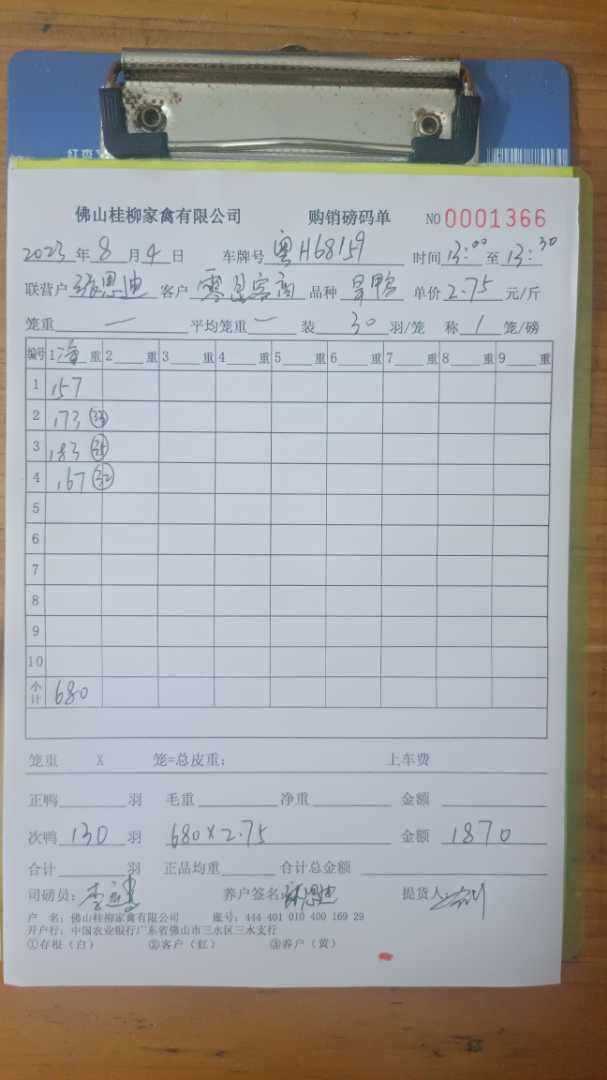 佛山桂柳家禽有限公司 购销磅码单 NO 0001366
2023年8月4日 车牌号 粤H68159 时间 13:00 至 13:30
联营户 张恩迪 客户 零星客商 品种 旱鸭 单价 2.75 元/斤
笼重 — 平均笼重 — 装 30 羽/笼 称 1 笼/磅
编号 1 净 重 2 重 3 重 4 重 5 重 6 重 7 重 8 重 9 重
1 157
2 173 33
3 183 35
4 167 32
5
6
7
8
9
10
小计 680
笼重 X 笼=总皮重: 上车费
正鸭 羽 毛重 净重 金额
次鸭 130 羽 680×2.75 金额 1870
合计 羽 正品均重 合计总金额
司磅员: 养户签名: 张恩迪 提货人:
户 名: 佛山桂柳家禽有限公司 账号: 444 401 010 400 169 29
开户行: 中国农业银行广东省佛山市三水区三水支行
①存根(白) ②客户(红) ③养户(黄)